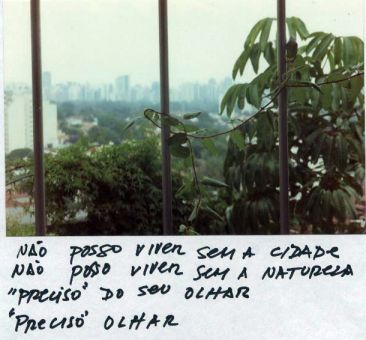 NÃO POSSO VIVER SEM A CIDADE
NÃO POSSO VIVER SEM A NATUREZA
"PRECISO" DO SEU OLHAR
"PRECISO" OLHAR